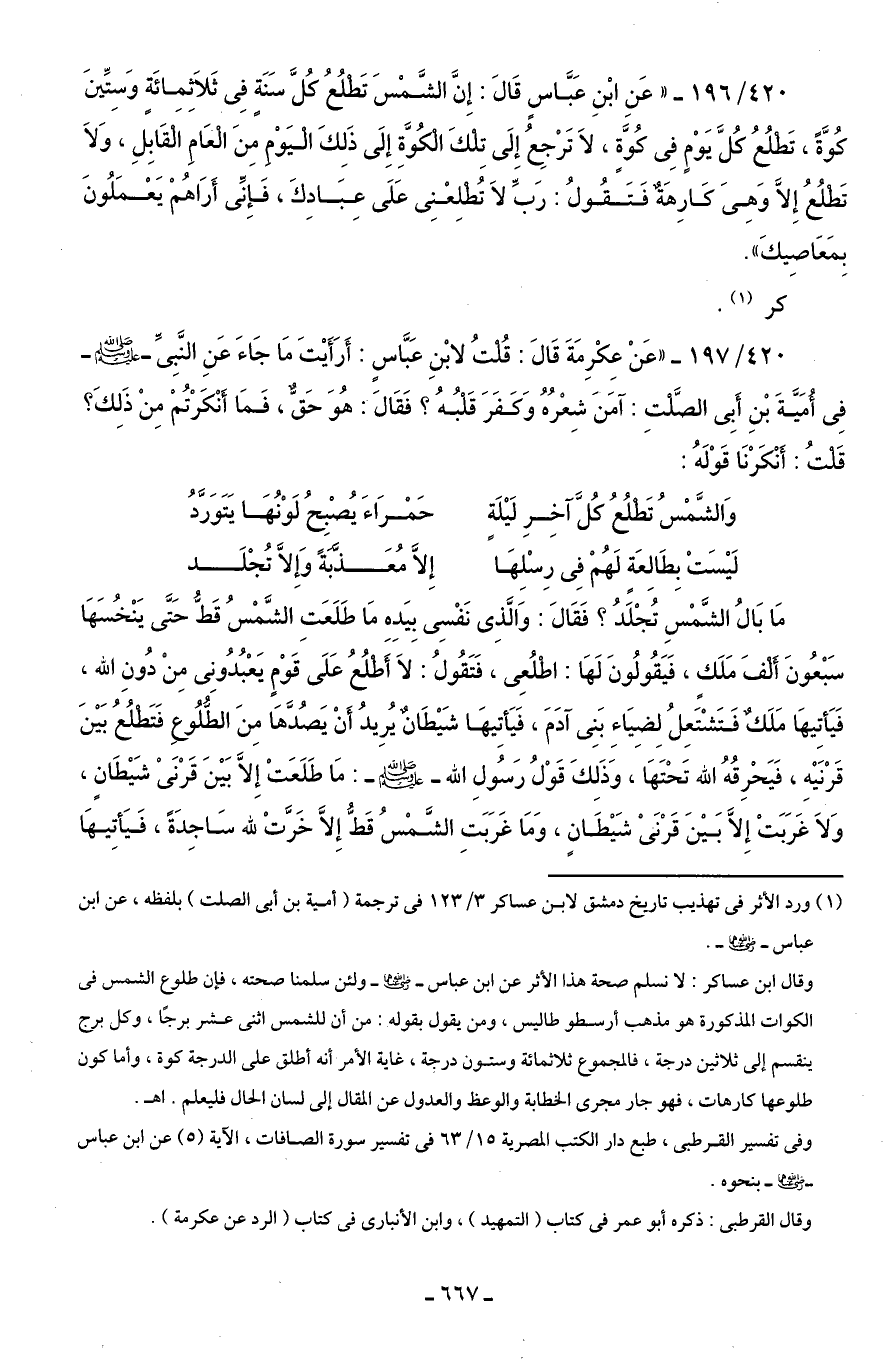 ٤٢٠/ ١٩٦ ـ « عَنِ ابْنِ عَبَّاسٍ قَالَ : إِنَّ الشَّمْسَ تَطْلُعُ كُلَّ سَنَةٍ فِى ثَلاَثِمِائَةٍ وَسِتِّينَ
كُوَّةً ، تَطْلُعُ كُلَّ يَوْمٍ فِى كُوَّةٍ ، لاَ تَرْجِعُ إِلَى تِلْكَ الكُوَّةِ إِلَى ذَلِكَ الْـيَوْمِ مِنَ الْعَامِ الْقَابِلِ ، وَلاَ
تَطْلُعُ إِلاَّ وَهِىَ كَـارِهَةٌ فَـتَـقُـولُ : رَبِّ لاَ تُطْلِعْـنِى عَلَى عِبَـادِكَ ، فَـإِنِّى أَرَاهُمْ يَعْـمَلُونَ
بِمَعَاصِيكَ».
كر (١) .
٤٢٠/ ١٩٧ ـ «عَنْ عِكْرِمَةَ قَالَ : قُلْتُ لابْنِ عَبَّاسٍ : أَرَأَيْتَ مَا جَاءَ عَنِ النَّبِىِّ ـ ﷺ ـ
فِى أُمَيَّـةَ بْنِ أَبِى الصَّلْتِ : آمَنَ شِعْرُهُ وَكَـفَرَ قَلْبُـهُ ؟ فَقَالَ : هُوَ حَقٌّ ، فَـمَا أَنْكَرْتُمْ مِنْ ذَلِكَ؟
قُلْتُ : أَنْكَرْنَا قَوْلَهُ :
وَالشَّمْسُ تَطْلُعُ كُلَّ آخِـرِ لَيْلَةٍ حَمْـرَاءَ يُصْبِحُ لَوْنُهَـا يَتَوَرَّدُ
لَيْسَتْ بِطَالِعَةٍ لَهُمْ فِى رِسْلِهَـا إِلاَّ مُعَـذَّبَةً وَإِلاَّ تُجْلَـدُ
مَا بَالُ الشَّمْسِ تُجْلَدُ ؟ فَقَالَ : وَالَّذِى نَفْسِى بِيَدِهِ مَا طَلَعَتِ الشَّمْسُ قَطُّ حَتَّى يَنْخُسَهَا
سَبْعُونَ أَلْفَ مَلَكٍ ، فَيَقُولُونَ لَهَا : اطْلُعِى ، فَتَقُولُ : لاَ أَطْلُعُ عَلَى قَوْمٍ يَعْبُدُونِى مِنْ دُونِ الله ،
فَيَأتِيهَا مَلَكٌ فَـتَشْتَعِلُ لِضِيَاءِ بَنِى آدَمَ ، فَيَأتِيهَـا شَيْطَانٌ يُرِيدُ أَنْ يَصُدَّهَا مِنَ الطُّلُوعِ فَتَطْلُعُ بَيْنَ
قَرْنَيْهِ ، فَيَحْرِقُهُ الله تَحْتَهَا ، وَذَلِكَ قَوْلُ رَسُولِ الله ـ ﷺ ـ : مَا طَلَعَتْ إِلاَّ بَيْنَ قَرْنَىْ شَيْطَانٍ ،
وَلاَ غَرَبَتْ إِلاَّ بَـيْنَ قَرْنَىْ شَيْطَانٍ ، وَمَا غَرَبَتِ الشَّـمْسُ قَطُّ إِلاَّ خَرَّتْ لله سَـاجِدَةً ، فَـيَأتِيـهَا
(١) ورد الأثر فى تهذيب تاريخ دمشق لابـن عساكر ٣/ ١٢٣ فى ترجمة ( أمـية بن أبى الصلت ) بلفظه ، عن ابن
عباس ـ رضي الله عنهما ـ .
وقال ابن عساكر : لا نسلم صحة هذا الأثر عن ابن عباس ـ رضي الله عنهما ـ ولئن سلمنا صحته ، فإن طلوع الشمس فى
الكوات المذكورة هو مذهب أرسطو طاليس ، ومن يقول بقوله : من أن للشمس اثنى عـشر برجًا ، وكل برج
ينقسم إلى ثلاثين درجة ، فالمجموع ثلاثمائة وستـون درجة ، غاية الأمر أنه أطلق على الدرجة كوة ، وأما كون
طلوعها كارهات ، فهو جار مجرى الخطابة والوعظ والعدول عن المقال إلى لسان الحال فليعلم . اهـ .
وفى تفسير القـرطبى ، طبع دار الكتب المصرية ١٥/ ٦٣ فى تفسير سورة الصـافات ، الآية (٥) عن ابن عباس
ـ رضي الله عنهما ـ بنحوه .
وقال القرطبى : ذكره أبو عمر فى كتاب ( التمهيد ) ، وابن الأنبارى فى كتاب ( الرد عن عكرمة ) .
ـ ٦٦٧ ـ